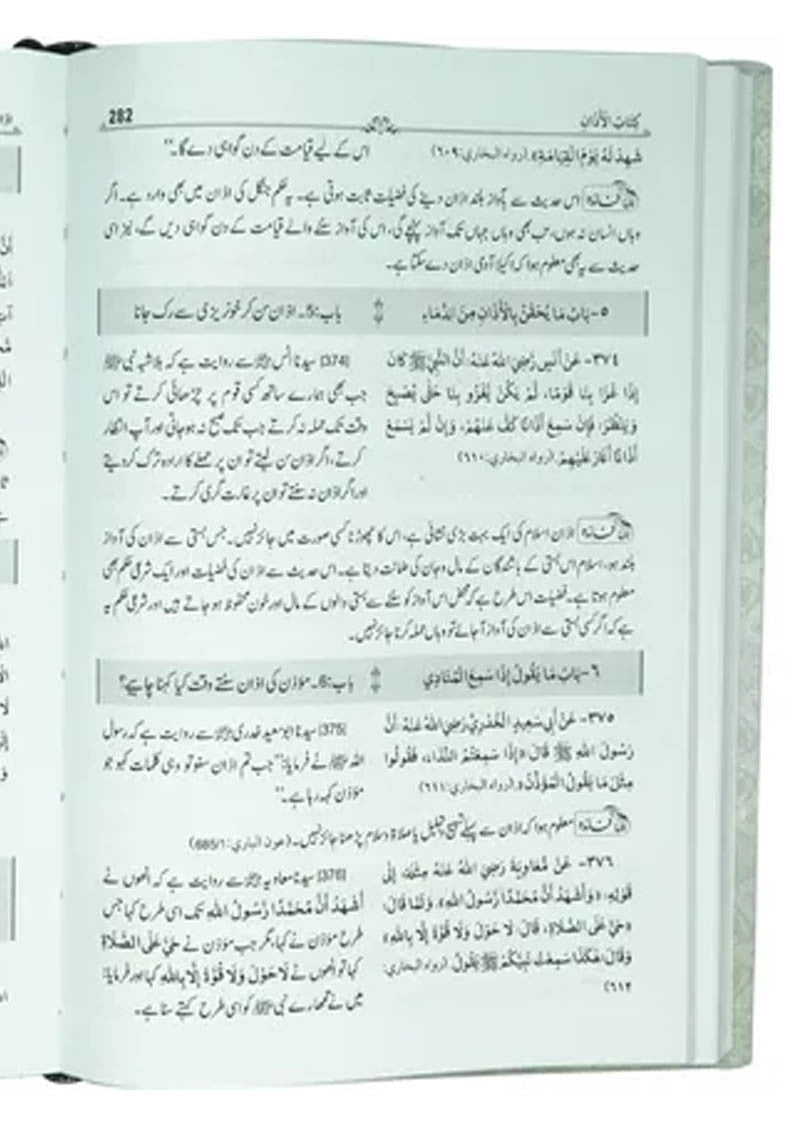 كِتَابُ الأَذَانِ 282
شَهِدَ لَهُ يَوْمَ الْقِيَامَةِ». (رواه البخاري: ٦٠٩)
اس کے لیے قیامت کے دن گواہی دے گا۔"
فائدہ اس حدیث سے بآواز بلند اذان دینے کی فضیلت ثابت ہوتی ہے۔ یہ حکم جنگل کی اذان میں بھی وارد ہے۔ اگر
وہاں انسان نہ ہوں، تب بھی وہاں جہاں تک آواز پہنچے گی، اس کی آواز سننے والے قیامت کے دن گواہی دیں گے، نیز اسی
حدیث سے یہ بھی معلوم ہوا کہ اکیلا آدمی اذان دے سکتا ہے۔
٥- بَابُ مَا يُحْقَنُ بِالأَذَانِ مِنَ الدِّمَاءِ
باب:5۔ اذان سن کر خونریزی سے رک جانا
٣٧٤- عَنْ أَنَسٍ رَضِيَ اللهُ عَنْهُ: أَنَّ النَّبِيَّ ﷺ كَانَ
إِذَا غَزَا بِنَا قَوْمًا، لَمْ يَكُنْ يَغْزُو بِنَا حَتَّى يُصْبِحَ
وَيَنْظُرَ، فَإِنْ سَمِعَ أَذَانًا كَفَّ عَنْهُمْ، وَإِنْ لَمْ يَسْمَعْ
أَذَانًا أَغَارَ عَلَيْهِمْ. (رواه البخاري: ٦١٠)
(374) سیدنا انس ؓ سے روایت ہے کہ بلاشبہ نبی ﷺ
جب بھی ہمارے ساتھ کسی قوم پر چڑھائی کرتے تو اس
وقت تک حملہ نہ کرتے جب تک صبح نہ ہو جاتی اور آپ انتظار
کرتے، اگر اذان سن لیتے تو ان پر حملے کا ارادہ ترک کر دیتے
اور اگر اذان نہ سنتے تو ان پر غارت گری کرتے۔
فائدہ اذان اسلام کی ایک بہت بڑی نشانی ہے، اس کا چھوڑنا کسی صورت میں جائز نہیں۔ جس بستی سے اذان کی آواز
بلند ہو، اسلام اس بستی کے باشندگان کے مال و جان کی ضمانت دیتا ہے۔ اس حدیث سے اذان کی فضیلت اور ایک شرعی حکم بھی
معلوم ہوتا ہے۔ فضیلت اس طرح ہے کہ محض اس آواز کو سننے سے بستی والوں کے مال اور خون محفوظ ہو جاتے ہیں اور شرعی حکم یہ
ہے کہ اگر کسی بستی سے اذان کی آواز آجائے تو وہاں حملہ کرنا جائز نہیں۔
٦- بَابُ مَا يَقُولُ إِذَا سَمِعَ الْمُنَادِي
باب:6۔ مؤذن کی اذان سنتے وقت کیا کہنا چاہیے؟
٣٧٥- عَنْ أَبِي سَعِيدٍ الْخُدْرِيِّ رَضِيَ اللهُ عَنْهُ: أَنَّ
رَسُولَ اللهِ ﷺ قَالَ: «إِذَا سَمِعْتُمُ النِّدَاءَ، فَقُولُوا
مِثْلَ مَا يَقُولُ الْمُؤَذِّنُ». (رواه البخاري: ٦١١)
(375) سیدنا ابو سعید خدری ؓ سے روایت ہے کہ رسول
اللہ ﷺ نے فرمایا: "جب تم اذان سنو تو وہی کلمات کہو جو
مؤذن کہہ رہا ہے۔"
فائدہ معلوم ہوا کہ اذان سے پہلے تسبیح و تہلیل یا صلاۃ و سلام پڑھنا جائز نہیں۔ (عون الباري: 685/1)
٣٧٦- عَنْ مُعَاوِيَةَ رَضِيَ اللهُ عَنْهُ مِثْلَهُ، إِلَى
قَوْلِهِ: «وَأَشْهَدُ أَنَّ مُحَمَّدًا رَسُولُ اللهِ». وَلَمَّا قَالَ:
«حَيَّ عَلَى الصَّلَاةِ، قَالَ: لَا حَوْلَ وَلَا قُوَّةَ إِلَّا بِاللهِ»
وَقَالَ: هَكَذَا سَمِعْتُ نَبِيَّكُمْ ﷺ يَقُولُ. (رواه البخاري:
٦١٢)
(376) سیدنا معاویہ ؓ سے روایت ہے کہ انھوں نے
أَشْهَدُ أَنَّ مُحَمَّدًا رَّسُولُ اللهِ تک اسی طرح کہا جس
طرح مؤذن نے کہا، مگر جب مؤذن نے حَيَّ عَلَى الصَّلَاةِ
کہا تو انھوں نے لَا حَوْلَ وَلَا قُوَّةَ إِلَّا بِاللهِ کہا اور فرمایا:
میں نے تمھارے نبی ﷺ کو اسی طرح کہتے سنا ہے۔